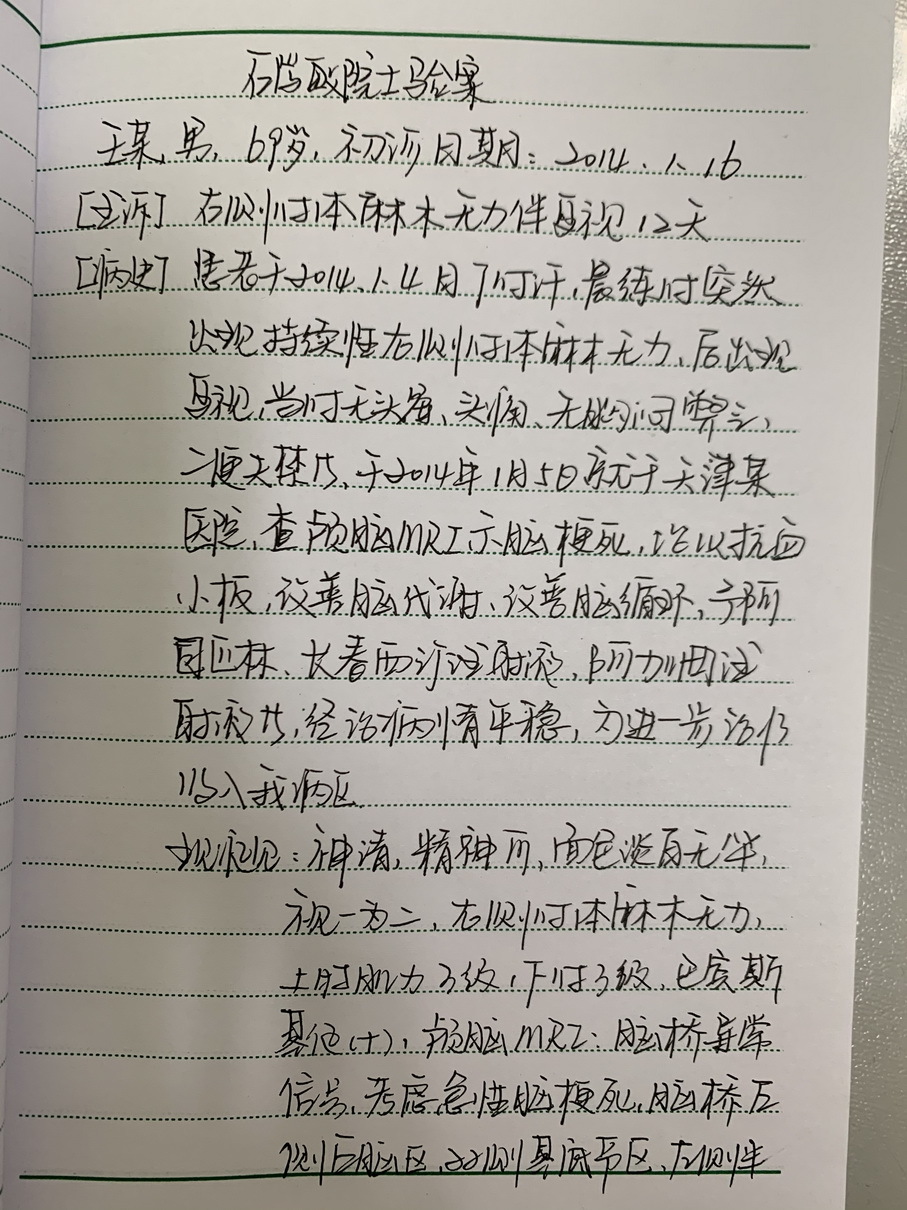 石学敏院士验案
王某,男,69岁,初诊日期:2014.1.16
[主诉] 右侧肢体麻木无力伴复视12天
[病史] 患者于2014.1.4日下午,晨练时突然
出现持续性右侧肢体麻木无力、后出现
复视,当时无头晕、头痛、无胸闷憋气、
二便失禁等,于2014年1月5日就诊于天津某
医院,查颅脑MRI示脑梗死,治以抗血
小板,改善脑代谢、改善脑循环,予阿
司匹林、长春西汀注射液,阿加曲注
射液等,经治病情平稳,为进一步治疗
收入我病区
现症见:神清,精神可,面色淡白无华,
视一为二,右侧肢体麻木无力,
上肢肌力3级,下肢3级,巴宾斯
基征(+),颅脑MRI:脑桥异常
信号,考虑急性脑梗死,脑桥左
侧后脑区,双侧基底节区、左侧半